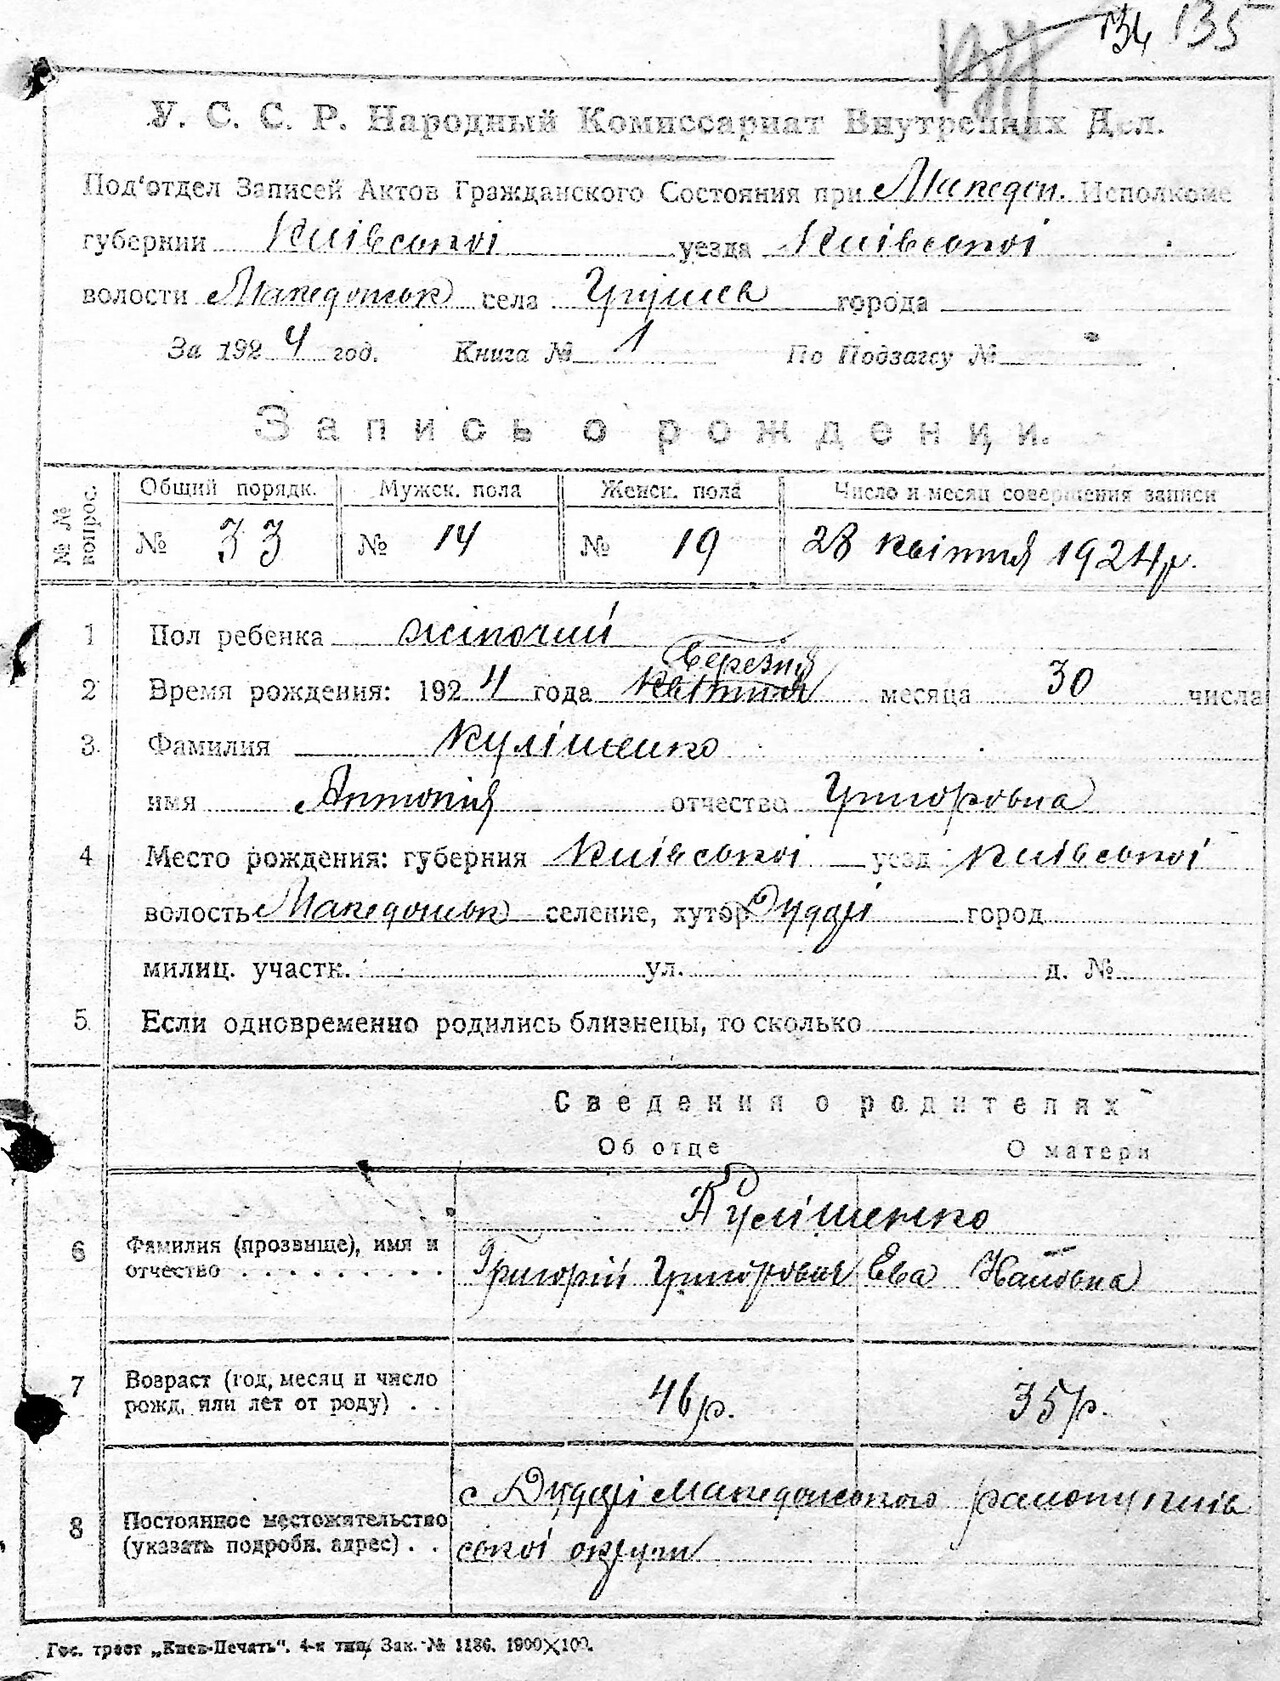 134 135
У. С. С. Р. Народный Комиссариат Внутренних Дел.
Под'отдел Записей Актов Гражданского Состояния при Македон. Исполкоме
губернии Київської уезда Київської
волости Македонськ села Грушев города
За 1924 год. Книга № 1 По Подзагсу №
Запись о рождении.
№ № вопрос. Общий порядк. Мужск. пола Женск. пола Число и месяц совершения записи
№ 33 № 14 № 19 28 квітня 1924 р.
1 Пол ребенка жіночий
березня
2 Время рождения: 1924 года квітня месяца 30 числа
3 Фамилия Кулішенко
имя Антонія отчество Григоровна
4 Место рождения: губерния Київської уезд Київської
волость Македонськ селение, хутор Дударі город
милиц. участк. ул. д. №
5 Если одновременно родились близнецы, то сколько
Сведения о родителях
Об отце О матери
Кулішенко
6 Фамилия (прозвище), имя и отчество Григорій Григорович Ева
7 Возраст (год, месяц и число рожд. или лет от роду) 46 р. 35 р.
8 Постоянное местожительство (указать подробн. адрес) с Дударі Македонського району Київ
ської округи
Гос. трест „Киев-Печать". 4-я тип. Зак. № 1186. 1900×100.